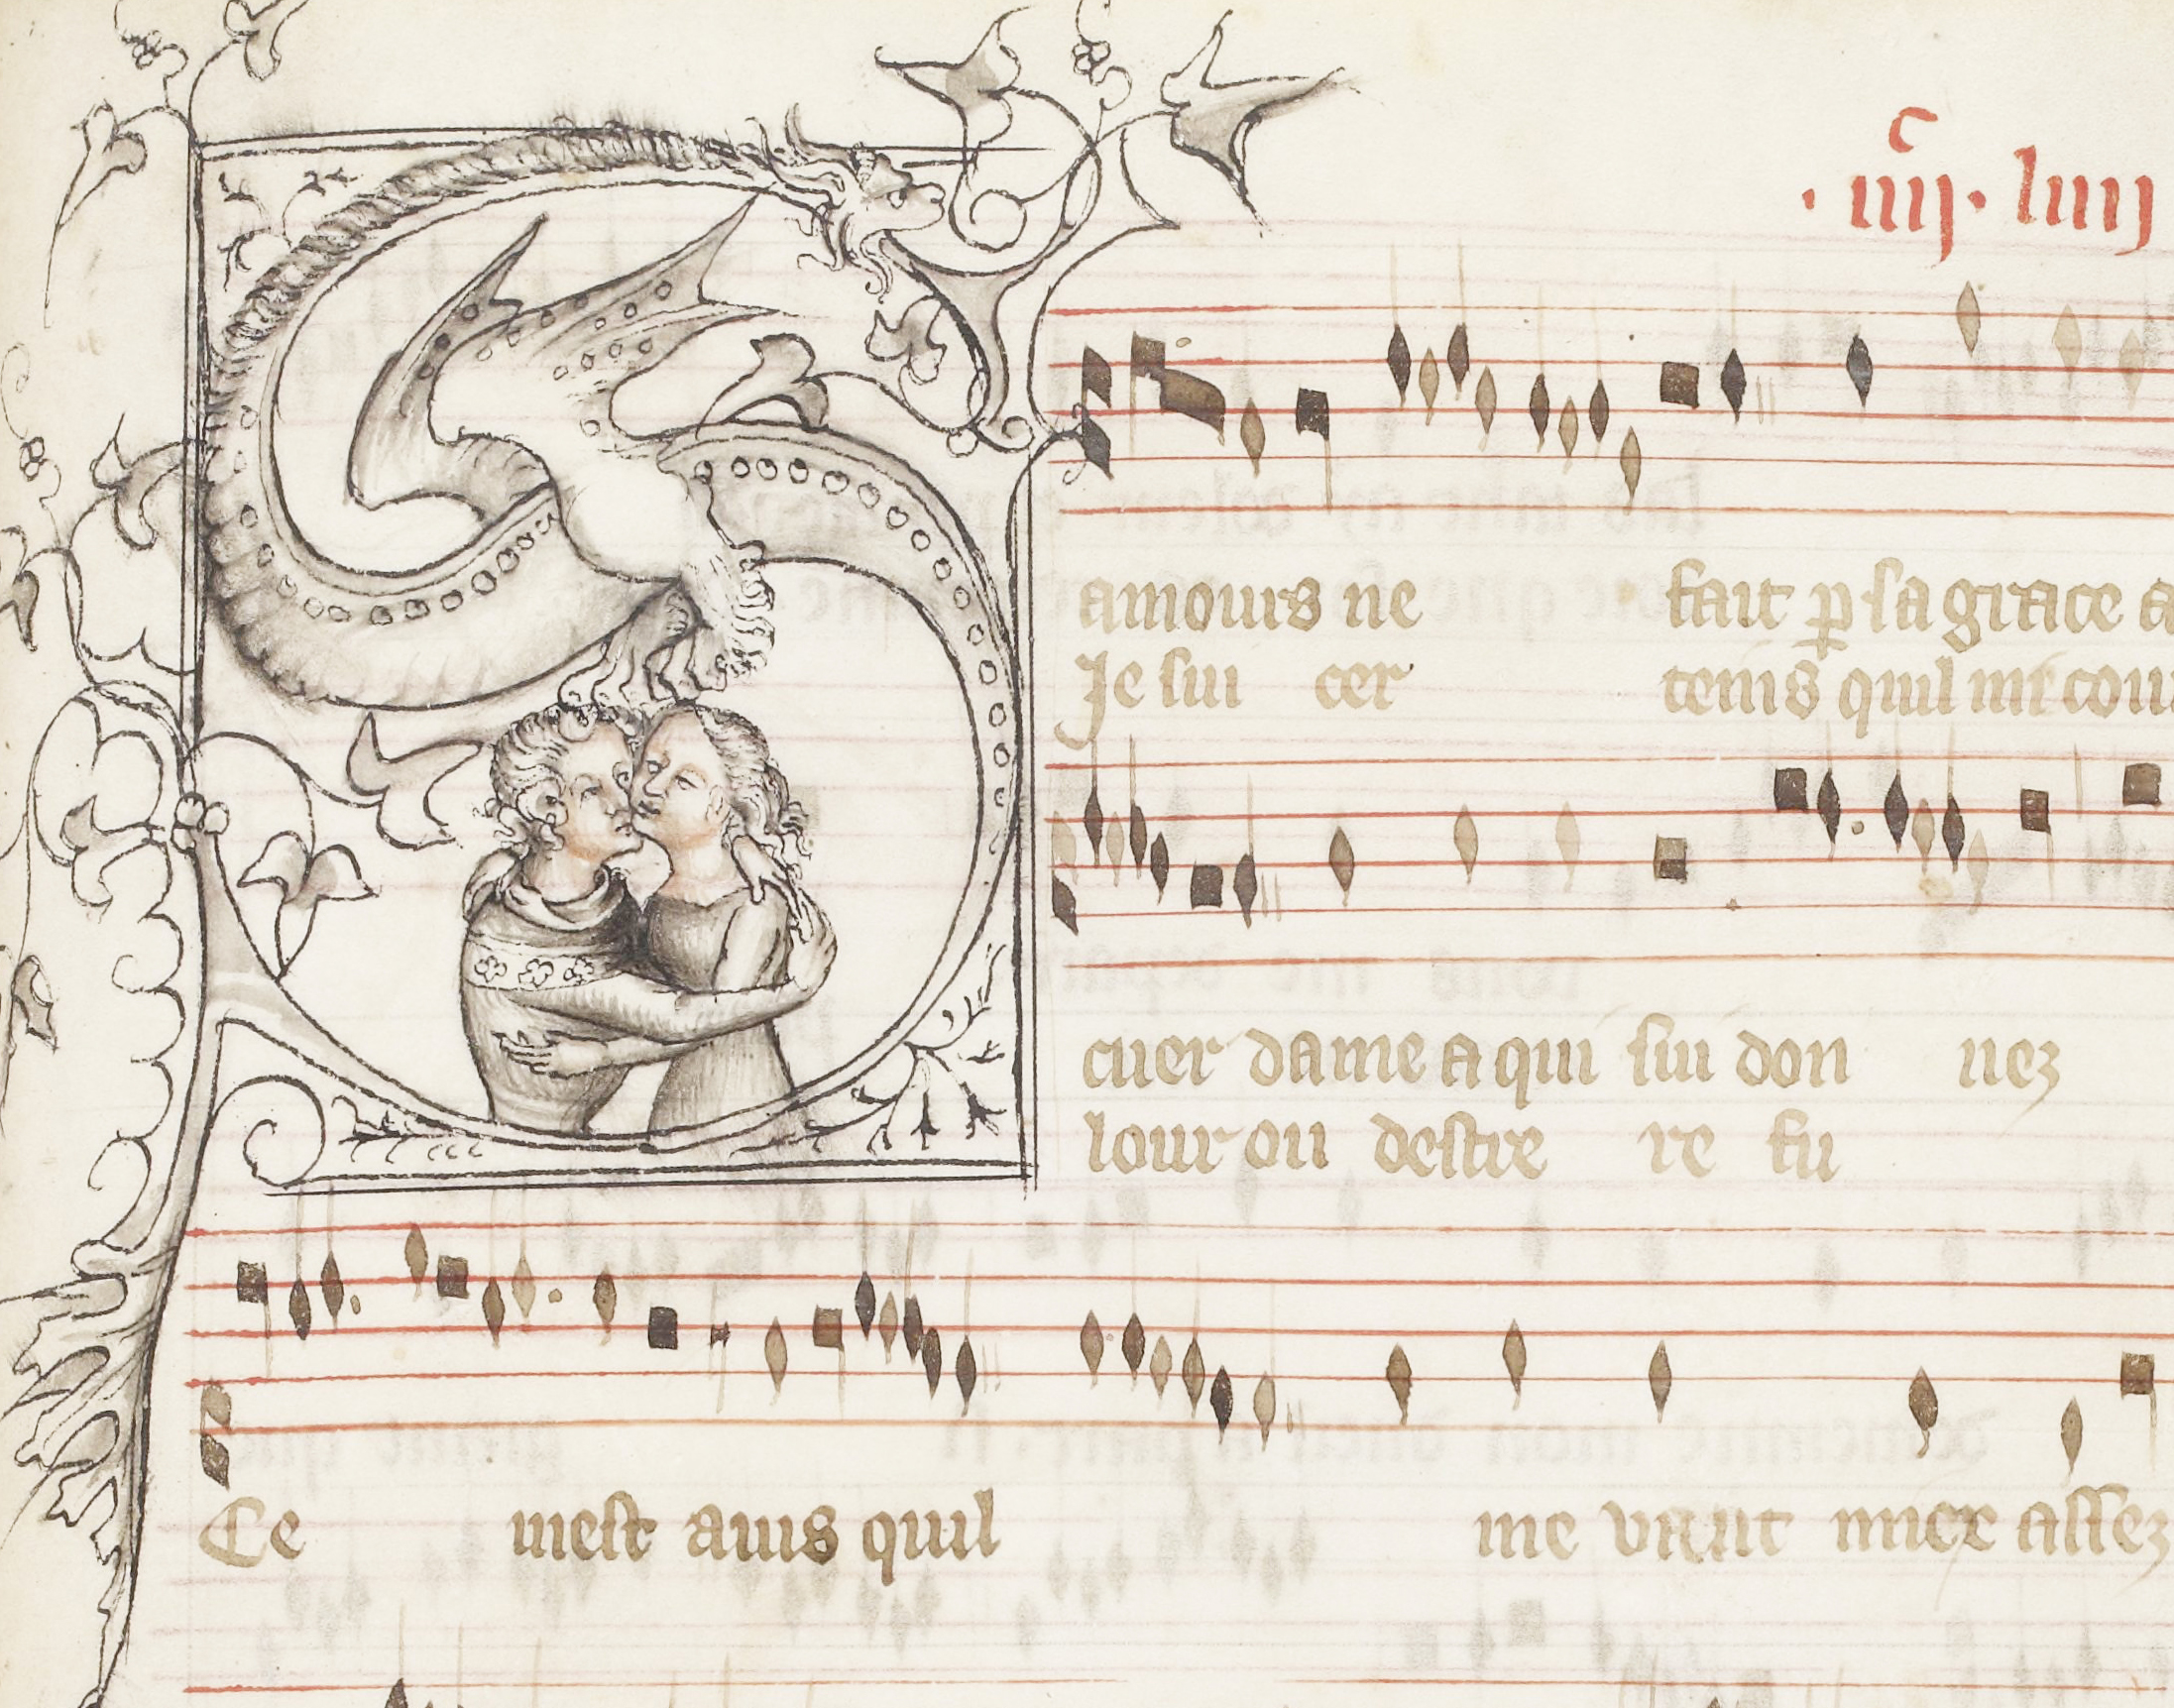 c
.iiij. liiij
S amours ne fait ꝑ sa grace a
Je sui cer teins quil mi cou
cuer dame a qui sui don nez
lour ou destre re fu
Ce mest auis quil me vaut miex assez